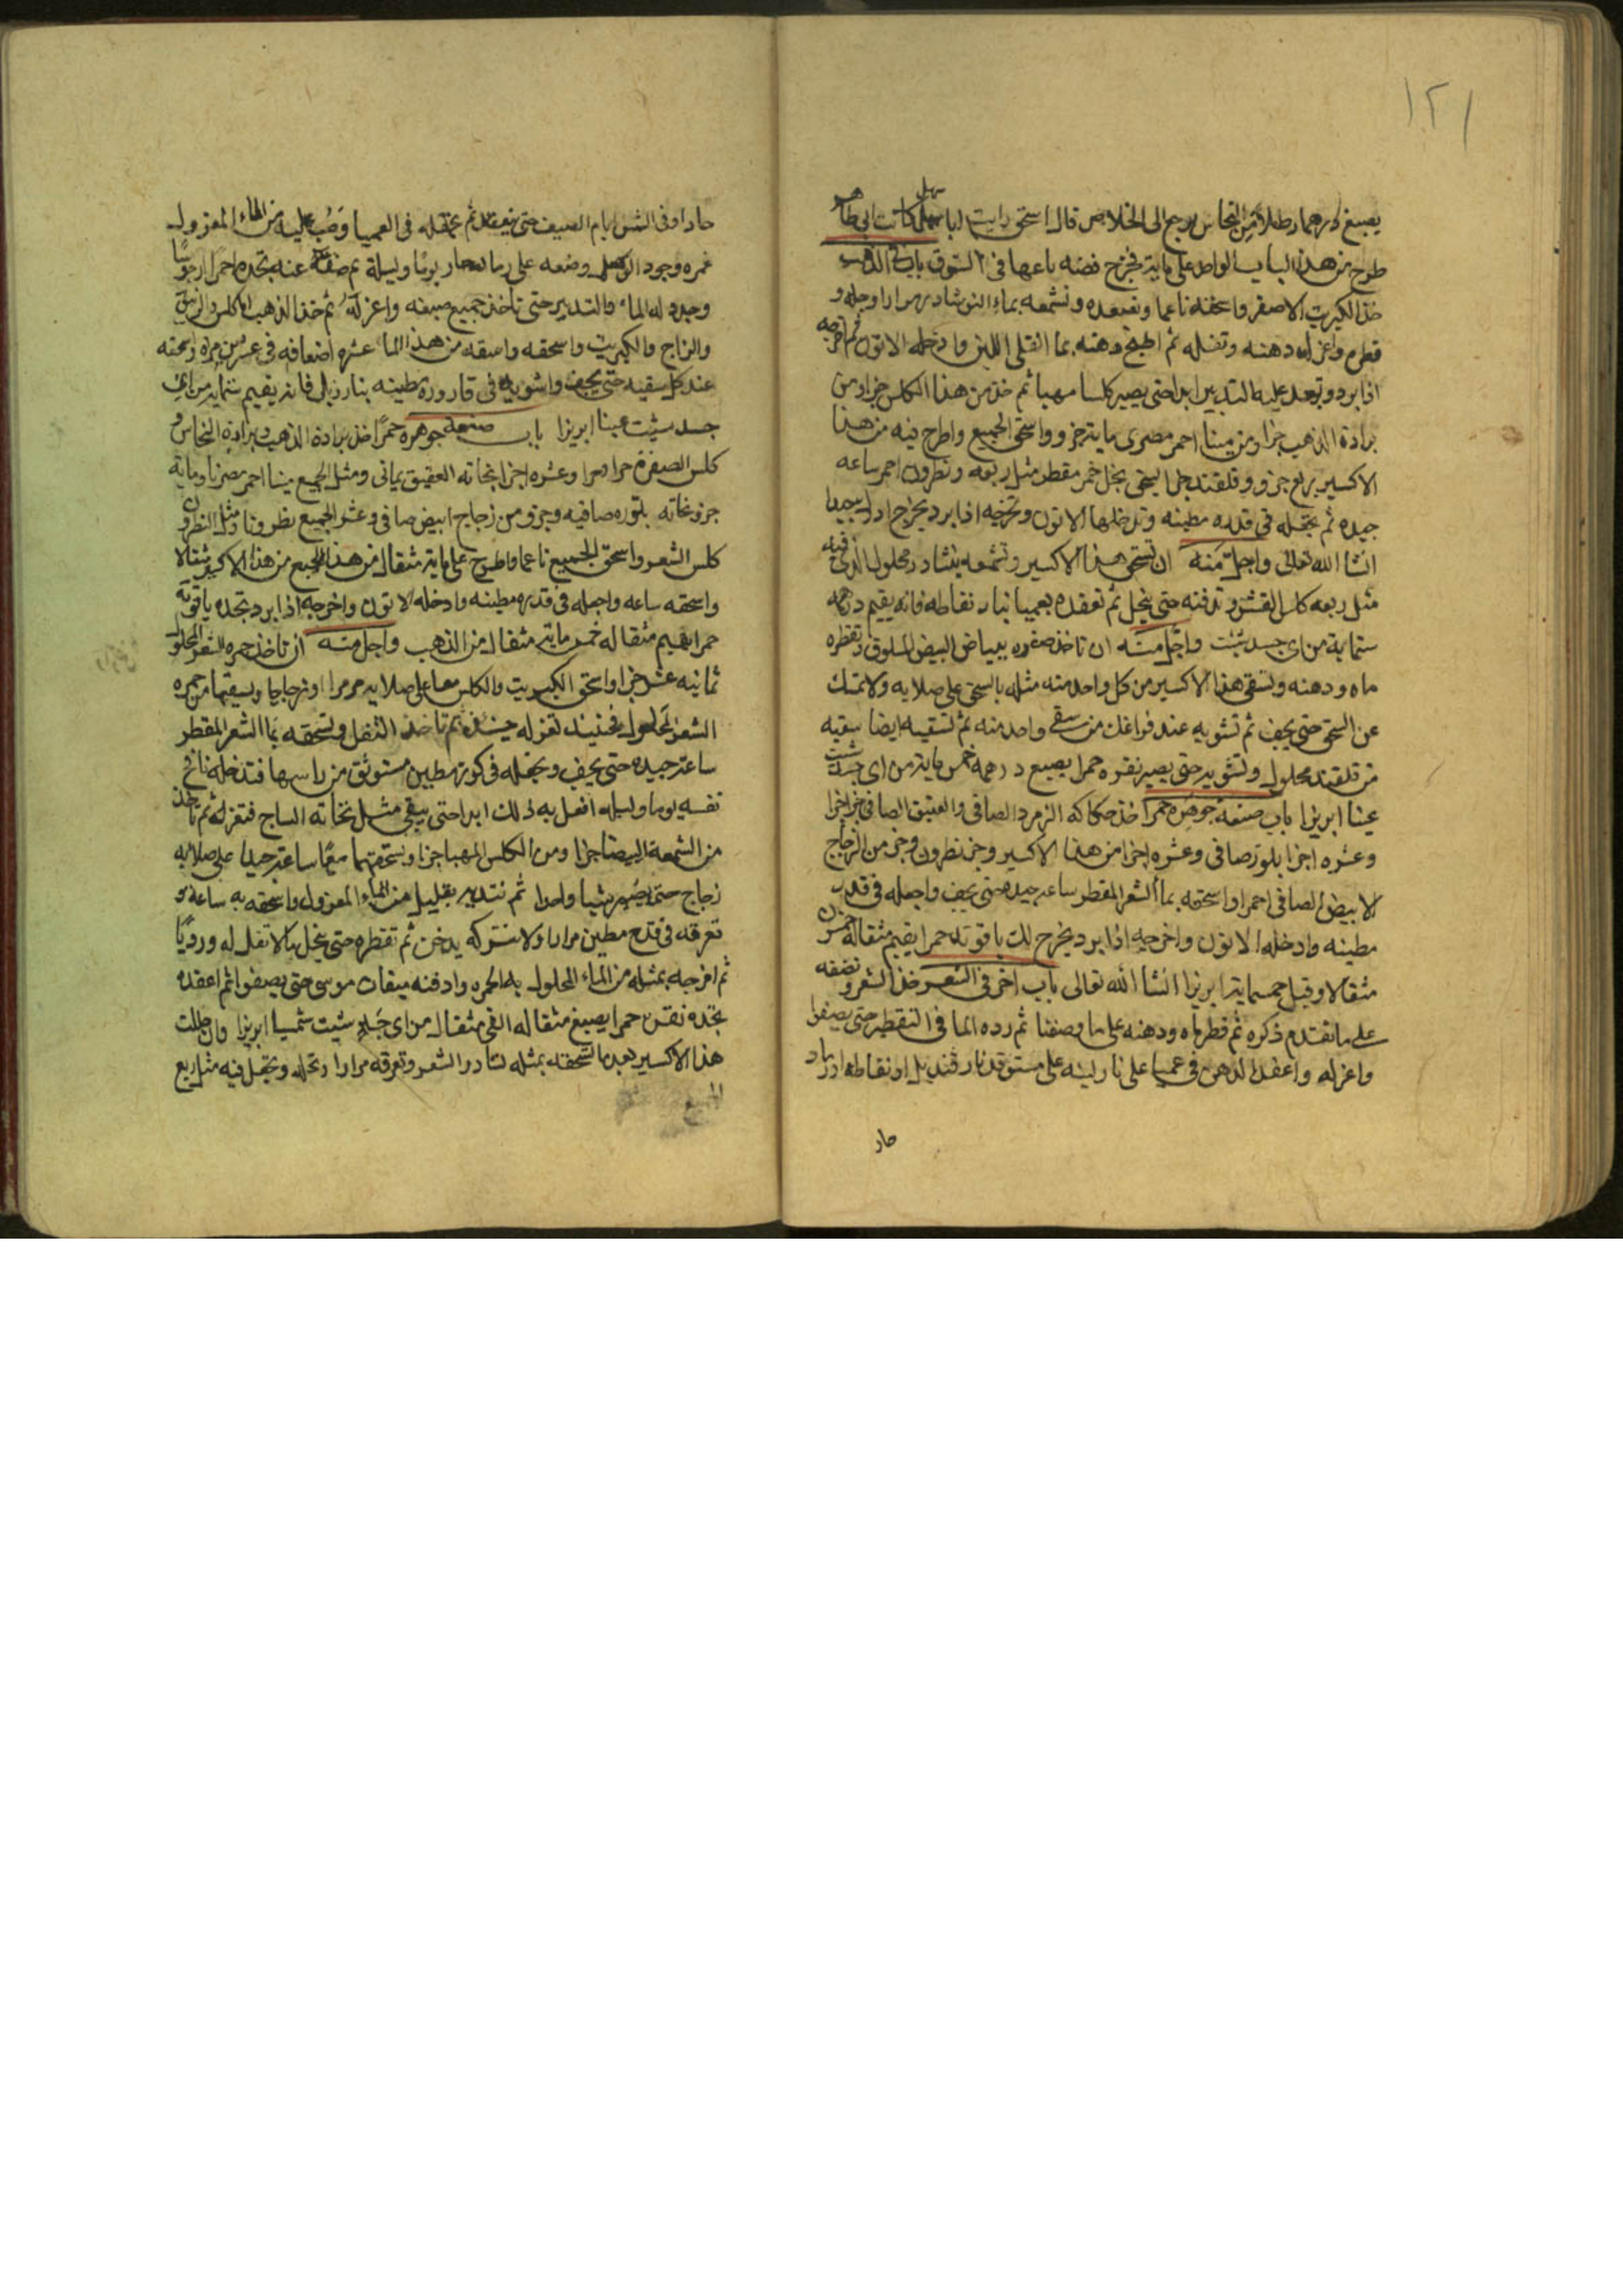 ١٢١
يصبغ درهما رطلا من النحاس يرجع الى الخلاص قال اسحق رايت ابا سهل كاتب ابى طاهر
طرح من هذا الباب الواحد على مايه فخرج فضه باعها فى السوق باب فى الذهب
خذ الكبريت الاصفر واسحقه ناعما وتصعده وتشمعه بماء النوشادر مرارا وحله و
قطره واعزل دهنه وثفله ثم اطبخ دهنه بما القلى اللين وادخله الاتون ثم اخرجه
اذا برد وتعد عليه التدبير ابدا حتى يصير كلسا مهبا ثم خذ من هذا الكلس جزا ومن
برادة الذهب جزا ومن مينا احمر مصرى مايه جزو واسحق الجميع واطرح فيه من هذا
الاكسير ربع جزو وقلقند حل اليسحق بخل خمر مقطر مثل ربعه ونطرون احمر ساعه
جيده ثم يجعله فى قدره مطينه وتدخلها الاتون وتخرجه اذا برد يخرج
انشا الله تعالى واجل منه ان تسحق هذا الاكسير وتشمعه بنشادر محلول الذى فيه
مثل ربعه كلس القشر وتدفنه حتى ينحل ثم تعقده بعميا بنار نفاطه فانه يقيم درهمه
ستمايه من اى جسد شيت واجل منه ان تاخذ صفره ببياض البيض المسلوق وتقطره
ماه ودهنه وتسقى هذا الاكسير من كل واحد منه مثله بالسحق على صلايه ولا تمسك
عن السحق حتى يجف ثم تشويه عند فراغك من سقى واحد منه ثم تسقيه ايضا سقيه
من قلقند محلول وتشويه حتى يصير نقره حمرا يصبغ درهمه خمس مايه من اى جسد شيت
عينا ابريزا باب صنعة جوهره حمرا خذ حكاكه الزمرد الصافى والعقيق الصافى جزا جزا
وعشره اجزا بلور صافى وعشره اجزا من هذا الاكسير وجز نطرون وجز من الزجاج
الابيض الصافى احمرا واسحقه بما الشعر المقطر ساعه جيده حتى يجف واجعله فى قدر
مطينه وادخله الاتون واخرجه اذا برد يخرج لك ياقوته حمرا يقيم مثقاله خمسون
مثقالا وقيل خمسمايه ابريزا انشا الله تعالى باب اخر فى الشعر خذ الشعر ونضفه
على ما تقدم ذكره ثم قطر ماه ودهنه على ما وصفنا ثم رده الما فى التقطير حتى يصفوا
واعزله واعقد الدهن فى عميا على نار لينه على مستوقد نار قنديل او نفاطه او رماد
حار
حار او فى الشمس ايام الصيف حتى ينعقد ثم تجعله فى العميا وصب عليه من الماء المعزول
غمره وجود الوصل وضعه على رماد حار يوما وليلة ثم صفه عنه تجده حمرا ارجوانيا
وجدد له الماء والتدبير حتى تاخذ جميع صبغه واعزله ثم خذ الذهب المكلس والزيبق
والزاج والكبريت واسحقه واسقه من هذا الماء عشره اضعافه فى عشرين مره وسحقه
عند كل سقيه حتى يجف واشويه فى قاروره مطينه بنار زبل فانه يقيم ستمايه من اى
جسد شيت عينا ابريزا باب صنعه جوهره حمرا خذ برادة الذهب وبرادة النحاس و
كلس الصفرة حمرا وعشره اجزا نحاته العقيق يمانى ومثل الجميع مينا احمر مصريا ومايه
جزو نحاته بلوره صافيه وجزو من زجاج ابيض صافى وعشر الجميع نطرونا ومثل النطرون
كلس الشعر واسحق الجميع ناعما واطرح على مايه مثقال من هذا الجميع من هذا الاكسير مثقالا
واسحقه ساعه واجعله فى قدره مطينه وادخله الاتون واخرجه اذا برد تجده ياقوته
حمرا يقيم مثقاله خمس مايه مثقال من الذهب واجل منه ان تاخذ حمره الشعر المحلول
ثمانيه عشر جزا واسحق الكبريت والكلس معا على صلايه مرمرا او زجاجا ويسقيها من حمره
الشعر المحلول فحينيذ تعزله ثم تاخذ الثفل وتسحقه بما الشعر المقطر
ساعه جيده حتى يجف ويجعله فى كوز مطين مستوثق من راسها فتدخله نافخ
نفسه يوما وليله افعل به ذلك ابدا حتى يبقى مثل نحاته الساج فتعزله ثم تاخذ
من الشمعة البيضا جزا ومن الكلس المهبا جزا وتسحقهما معا ساعه جيدا على صلايه
زجاج حتى يصير شيا واحدا ثم تنديه بقليل من الماء المعزول واسحقه به ساعة و
تعرقه فى قدح مطين مرارا ولا تتركه يدخن ثم تقطره حتى ينحل بلا ثفل له ورديا
ثم امزجه بمثله من الماء المحلول بالحمره وادفنه ميقات موسى حتى يصفوا ثم اعقده
تجده نقس حمرا يصبغ مثقاله الفى مثقال من اى جسد شيت شمسا ابريزا وان حللت
هذا الاكسير بعد ما تسحقه بمثله نشادر الشعر وتعرقه مرارا وتحله وتجعل فيه مثل ربع